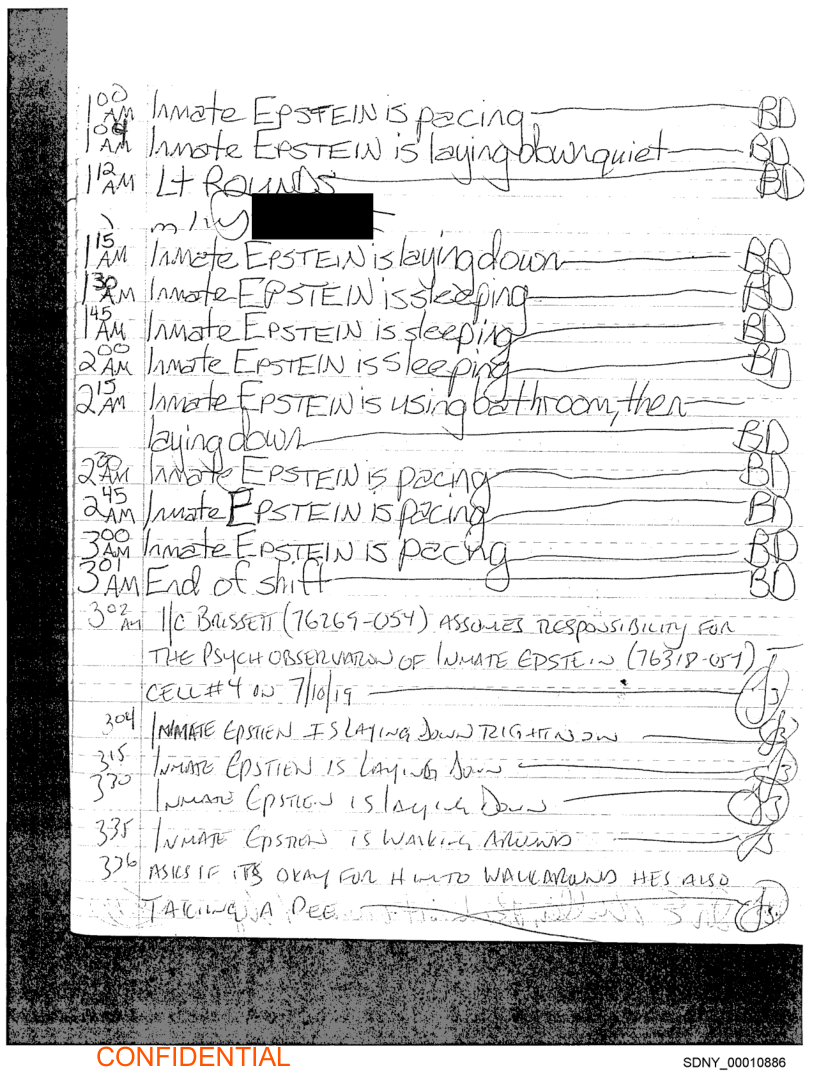 1:00 AM Inmate EPSTEIN is pacing BD
1:04 AM Inmate EPSTEIN is laying down quiet BD
1:12 AM Lt ROUNDS BD
1:15 AM Inmate EPSTEIN is laying down BD
1:30 AM Inmate EPSTEIN is sleeping BD
1:45 AM Inmate EPSTEIN is sleeping BD
2:00 AM Inmate EPSTEIN is sleeping BD
2:15 AM Inmate EPSTEIN is using bathroom, then
laying down BD
2:30 AM Inmate EPSTEIN is pacing BD
2:45 AM Inmate EPSTEIN is pacing BD
3:00 AM Inmate EPSTEIN is pacing BD
3:01 AM End of shift BD
3:02 AM I/C BRISSETT (76269-054) ASSUMES RESPONSIBILITY FOR
THE PSYCH OBSERVATION OF INMATE EPSTEIN (76318-054)
CELL #4 ON 7/10/19
304 INMATE EPSTIEN IS LAYING DOWN RIGHT NOW
315 INMATE EPSTIEN IS LAYING DOWN
330 INMATE EPSTIEN IS LAYING DOWN
335 INMATE EPSTIEN IS WALKING AROUND
336 ASKS IF ITS OKAY FOR HIM TO WALK AROUND HES ALSO
TAKING A PEE
CONFIDENTIAL
SDNY_00010886